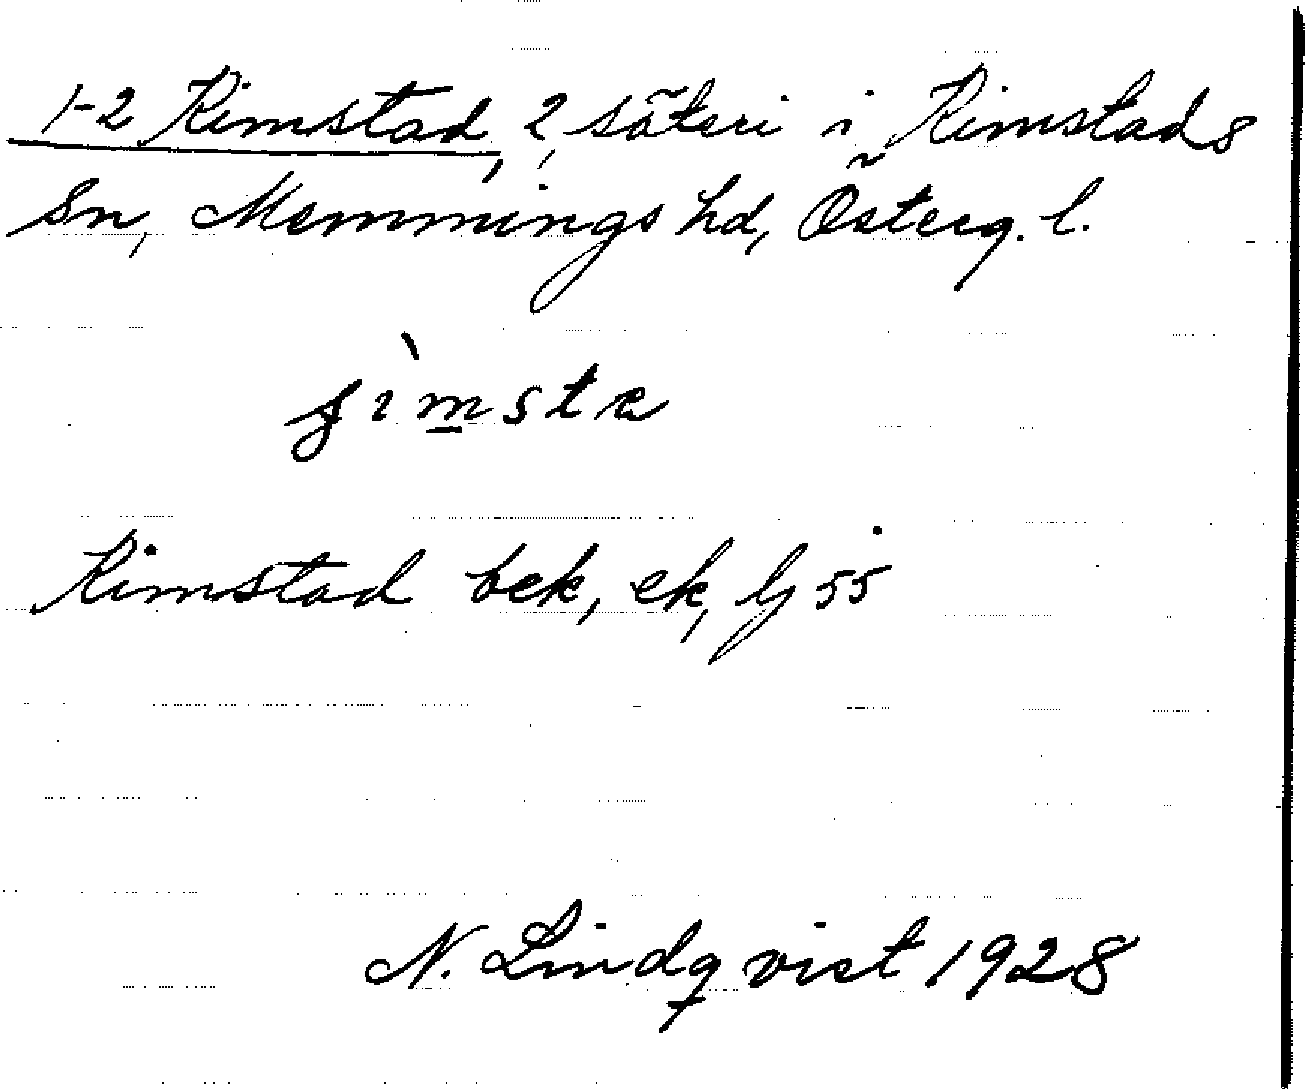 1-2 Kimstad, 2, säteri i Kimstads
sn, Memmings hd, Österg. l.
Kimstad bek, ek, lj 55
N. Lindqvist 1928